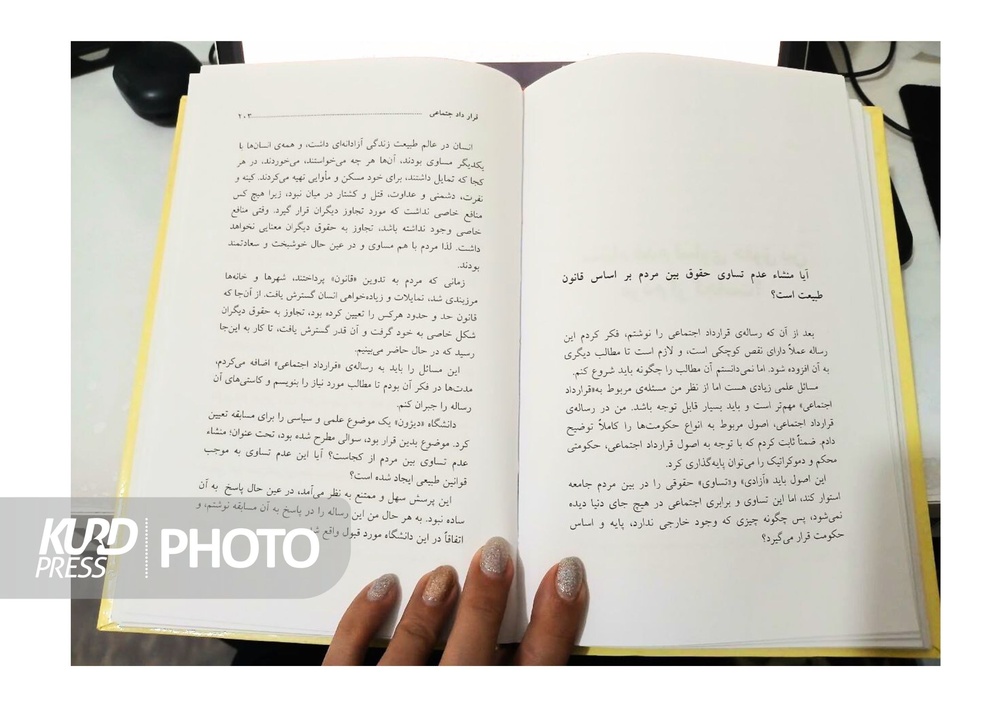 آیا منشاء عدم تساوی حقوق بین مردم بر اساس قانون
طبیعت است؟
بعد از آن که رساله‌ی قرارداد اجتماعی را نوشتم، فکر کردم این
رساله عملاً دارای نقص کوچکی است، و لازم است تا مطالب دیگری
به آن افزوده شود. اما نمی‌دانستم آن مطالب را چگونه باید شروع کنم.
مسائل علمی زیادی هست اما از نظر من مسئله‌ی مربوط به«قرارداد
اجتماعی» مهم‌تر است و باید بسیار قابل توجه باشد. من در رساله‌ی
قرارداد اجتماعی، اصول مربوط به انواع حکومت‌ها را کاملاً توضیح
دادم. ضمناً ثابت کردم که با توجه به اصول قرارداد اجتماعی، حکومتی
محکم و دموکراتیک را می‌توان پایه‌گذاری کرد.
این اصول باید «آزادی» و«تساوی» حقوقی را در بین مردم جامعه
استوار کند، اما این تساوی و برابری اجتماعی در هیچ جای دنیا دیده
نمی‌شود، پس چگونه چیزی که وجود خارجی ندارد، پایه و اساس
حکومت قرار می‌گیرد؟
قرار داد جتماعی ۲۰۳
انسان در عالم طبیعت زندگی آزادانه‌ای داشت، و همه‌ی انسان‌ها با
یکدیگر مساوی بودند، آن‌ها هر چه می‌خواستند، می‌خوردند، در هر
کجا که تمایل داشتند، برای خود مسکن و مأوایی تهیه می‌کردند. کینه و
نفرت، دشمنی و عداوت، قتل و کشتار در میان نبود، زیرا هیچ کس
منافع خاصی نداشت که مورد تجاوز دیگران قرار گیرد. وقتی منافع
خاصی وجود نداشته باشد، تجاوز به حقوق دیگران معنایی نخواهد
داشت. لذا مردم با هم مساوی و در عین حال خوشبخت و سعادتمند
بودند.
زمانی که مردم به تدوین «قانون» پرداختند، شهرها و خانه‌ها
مرزبندی شد، تمایلات و زیاده‌خواهی انسان گسترش یافت. از آن‌جا که
قانون حد و حدود هرکس را تعیین کرده بود، تجاوز به حقوق دیگران
شکل خاصی به خود گرفت و آن قدر گسترش یافت، تا کار به این‌جا
رسید که در حال حاضر می‌بینیم.
این مسائل را باید به رساله‌ی «قرارداد اجتماعی» اضافه می‌کردم،
مدت‌ها در فکر آن بودم تا مطالب مورد نیاز را بنویسم و کاستی‌های آن
رساله را جبران کنم.
دانشگاه «دیژون» یک موضوع علمی و سیاسی را برای مسابقه تعیین
کرد. موضوع بدین قرار بود، سوالی مطرح شده بود، تحت عنوان؛ منشاء
عدم تساوی بین مردم از کجاست؟ آیا این عدم تساوی به موجب
قوانین طبیعی ایجاد شده است؟
این پرسش سهل و ممتنع به نظر می‌آمد، در عین حال پاسخ به آن
ساده نبود. به هر حال من این رساله را در پاسخ به آن مسابقه نوشتم، و
اتفاقاً در این دانشگاه مورد قبول واقع
KURD PRESS PHOTO